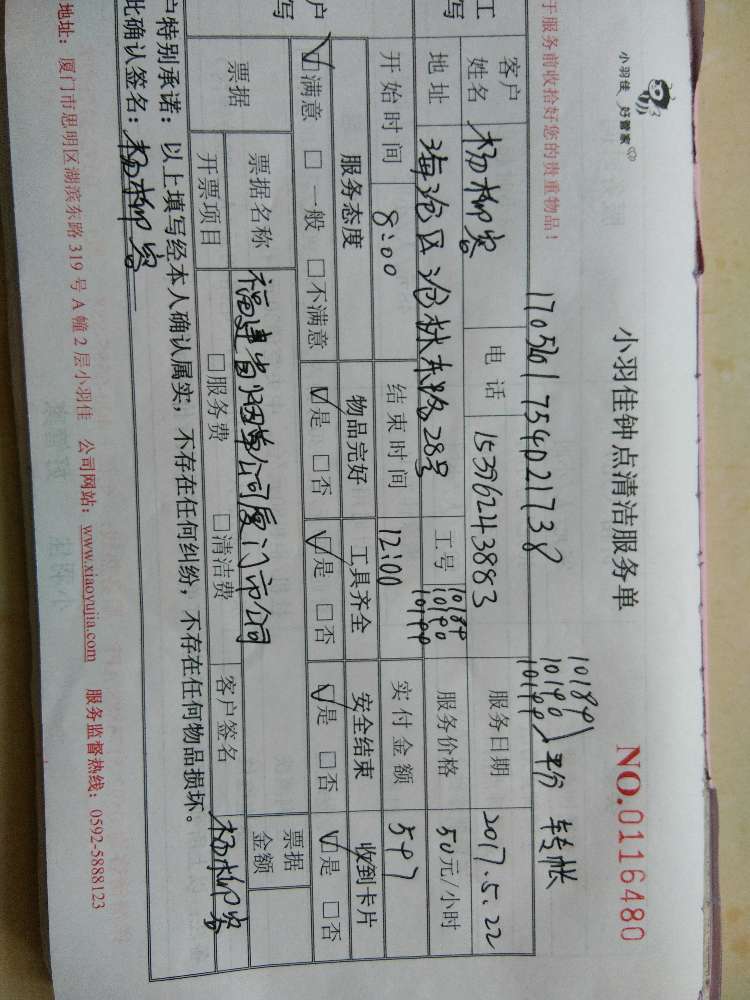 小羽佳 好管家
小羽佳钟点清洁服务单
NO.0116480
于服务前收拾好您的贵重物品！
1705201754021738
10184
10190
10199
平分 转帐
工
写
客户姓名 杨柳 电话 15396243883 服务日期 2017.5.22
地址 海沧区沧林东路28号 工号 10184 10190 10199 服务价格 50元/小时
开始时间 8:00 结束时间 12:00 实付金额 597
户
写
服务态度 物品完好 工具齐全 安全结束 收到卡片
☑满意 □一般 □不满意 ☑是 □否 ☑是 □否 ☑是 □否 ☑是 □否
票据 票据名称 福建省烟草公司厦门市公司 票据金额
开票项目 □服务费 □清洁费 客户签名 杨柳
户特别承诺：以上填写经本人确认属实，不存在任何纠纷，不存在任何物品损坏。
此确认签名：杨柳
地址：厦门市思明区湖滨东路 319 号 A 幢 2 层小羽佳 公司网站：www.xiaoyujia.com 服务监督热线：0592-5888123